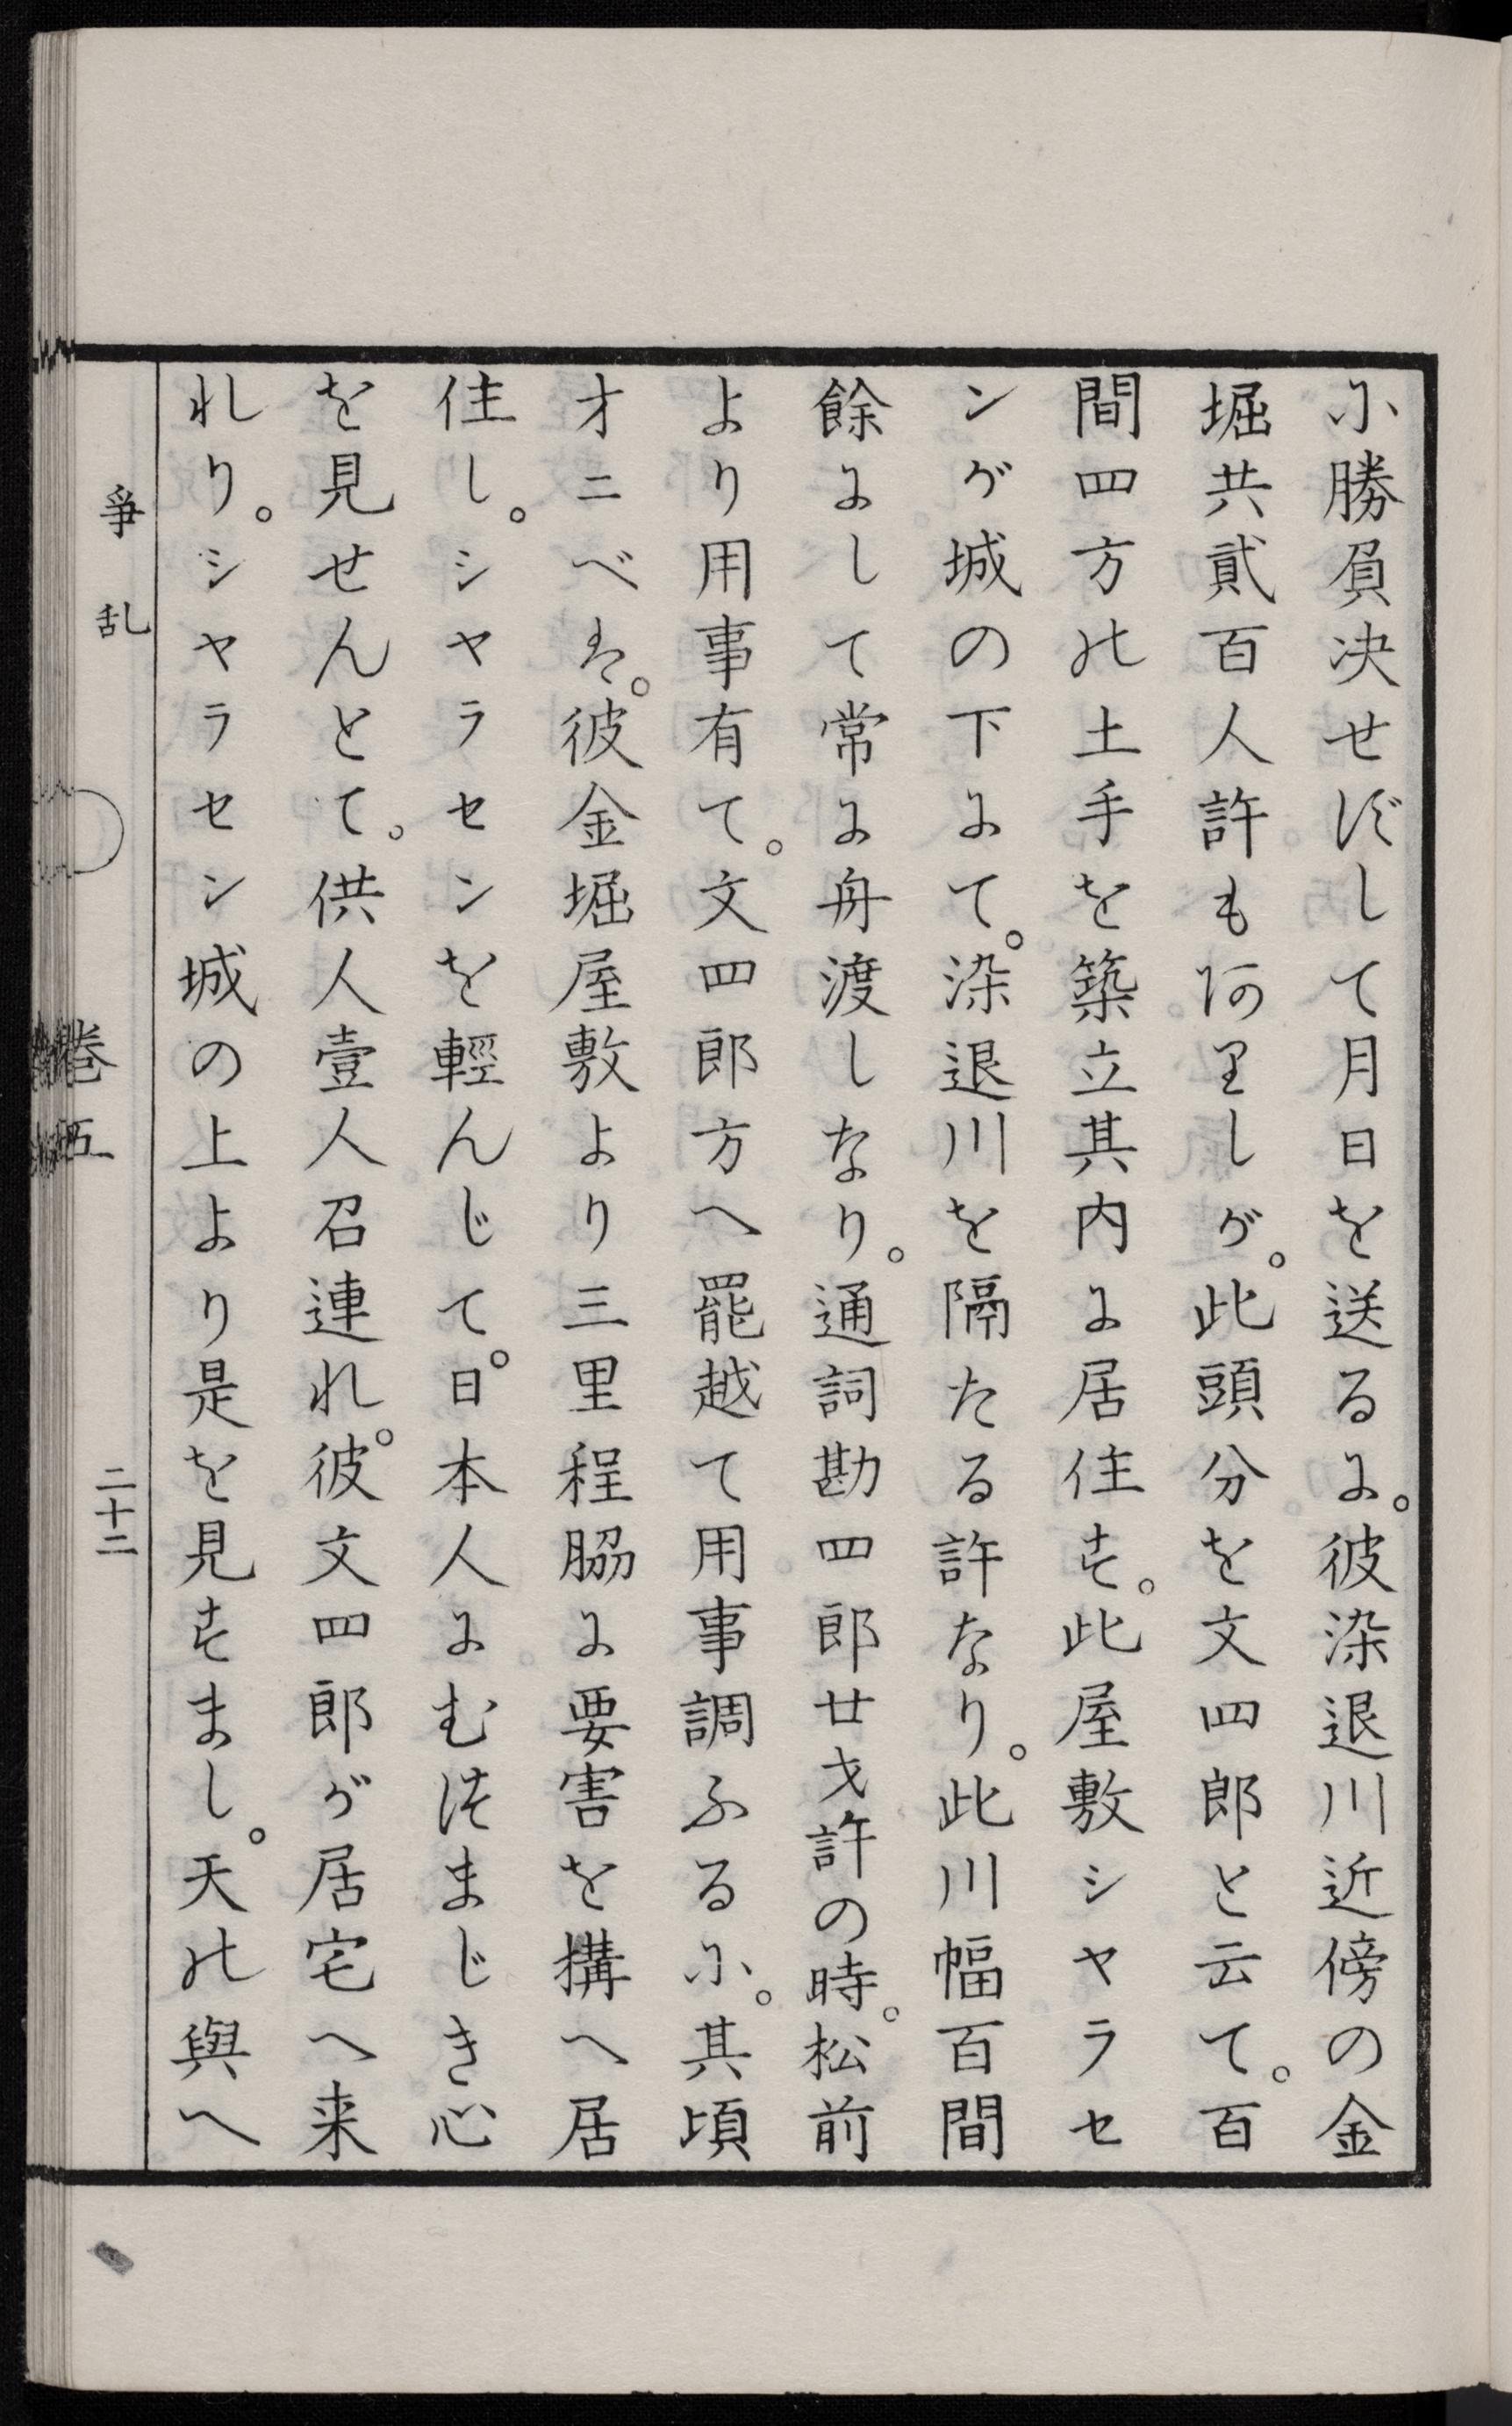 に勝負决せずして月日を送るに。彼染退川近傍の金
堀共貳百人許もありしが。此頭分を文四郎と云て。百
間四方の土手を築立其内に居住す。此屋敷シヤラセ
ンが城の下にて。染退川を隔たる許なり。此川幅百間
餘にして常に舟渡しなり。通詞勘四郎廿才許の時。松前
より用事有て。文四郎方へ罷越て用事調ふるに。其頃
オニベは。彼金堀屋敷より三里程脇に要害を搆へ居
住し。シヤラセンを輕んじて。日本人にむつまじき心
を見せんとて。供人壹人召連れ。彼文四郎が居宅へ来
れり。シヤラセン城の上より是を見すまし。天の與へ
爭乱　卷五　二十二